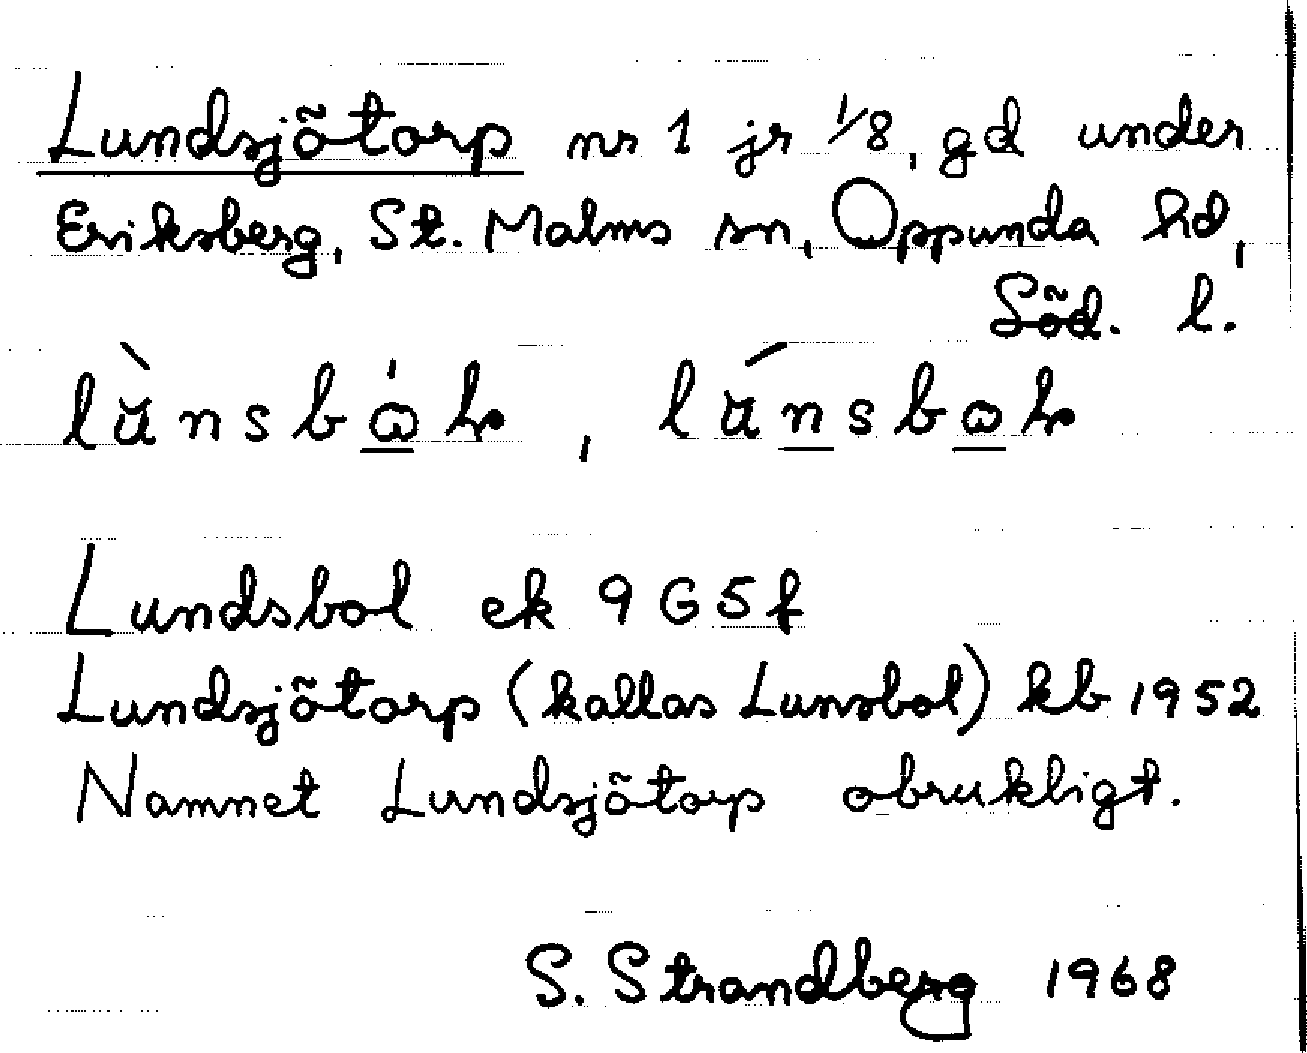 Lundsjötorp nr 1 jr 1/8, gd under
Eriksberg, St. Malms sn, Oppunda hd,
Söd. l.
Lundsbol ek 9 G 5 f
Lundsjötorp (kallas Lunsbol) kb 1952
Namnet Lundsjötorp obrukligt.
S. Strandberg 1968